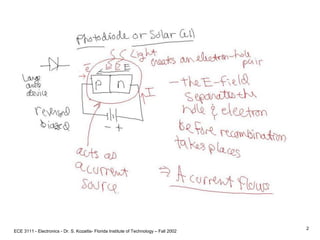 Photodiode or Solar Cell
Light
creates an electron-hole
pair
E
Large
area
device
P n
I
reversed
biased
- +
acts as
a current
source
- the E-field
separates the
hole & electron
before recombination
takes places
⇒ A current flows
ECE 3111 - Electronics - Dr. S. Kozaitis- Florida Institute of Technology – Fall 2002
2